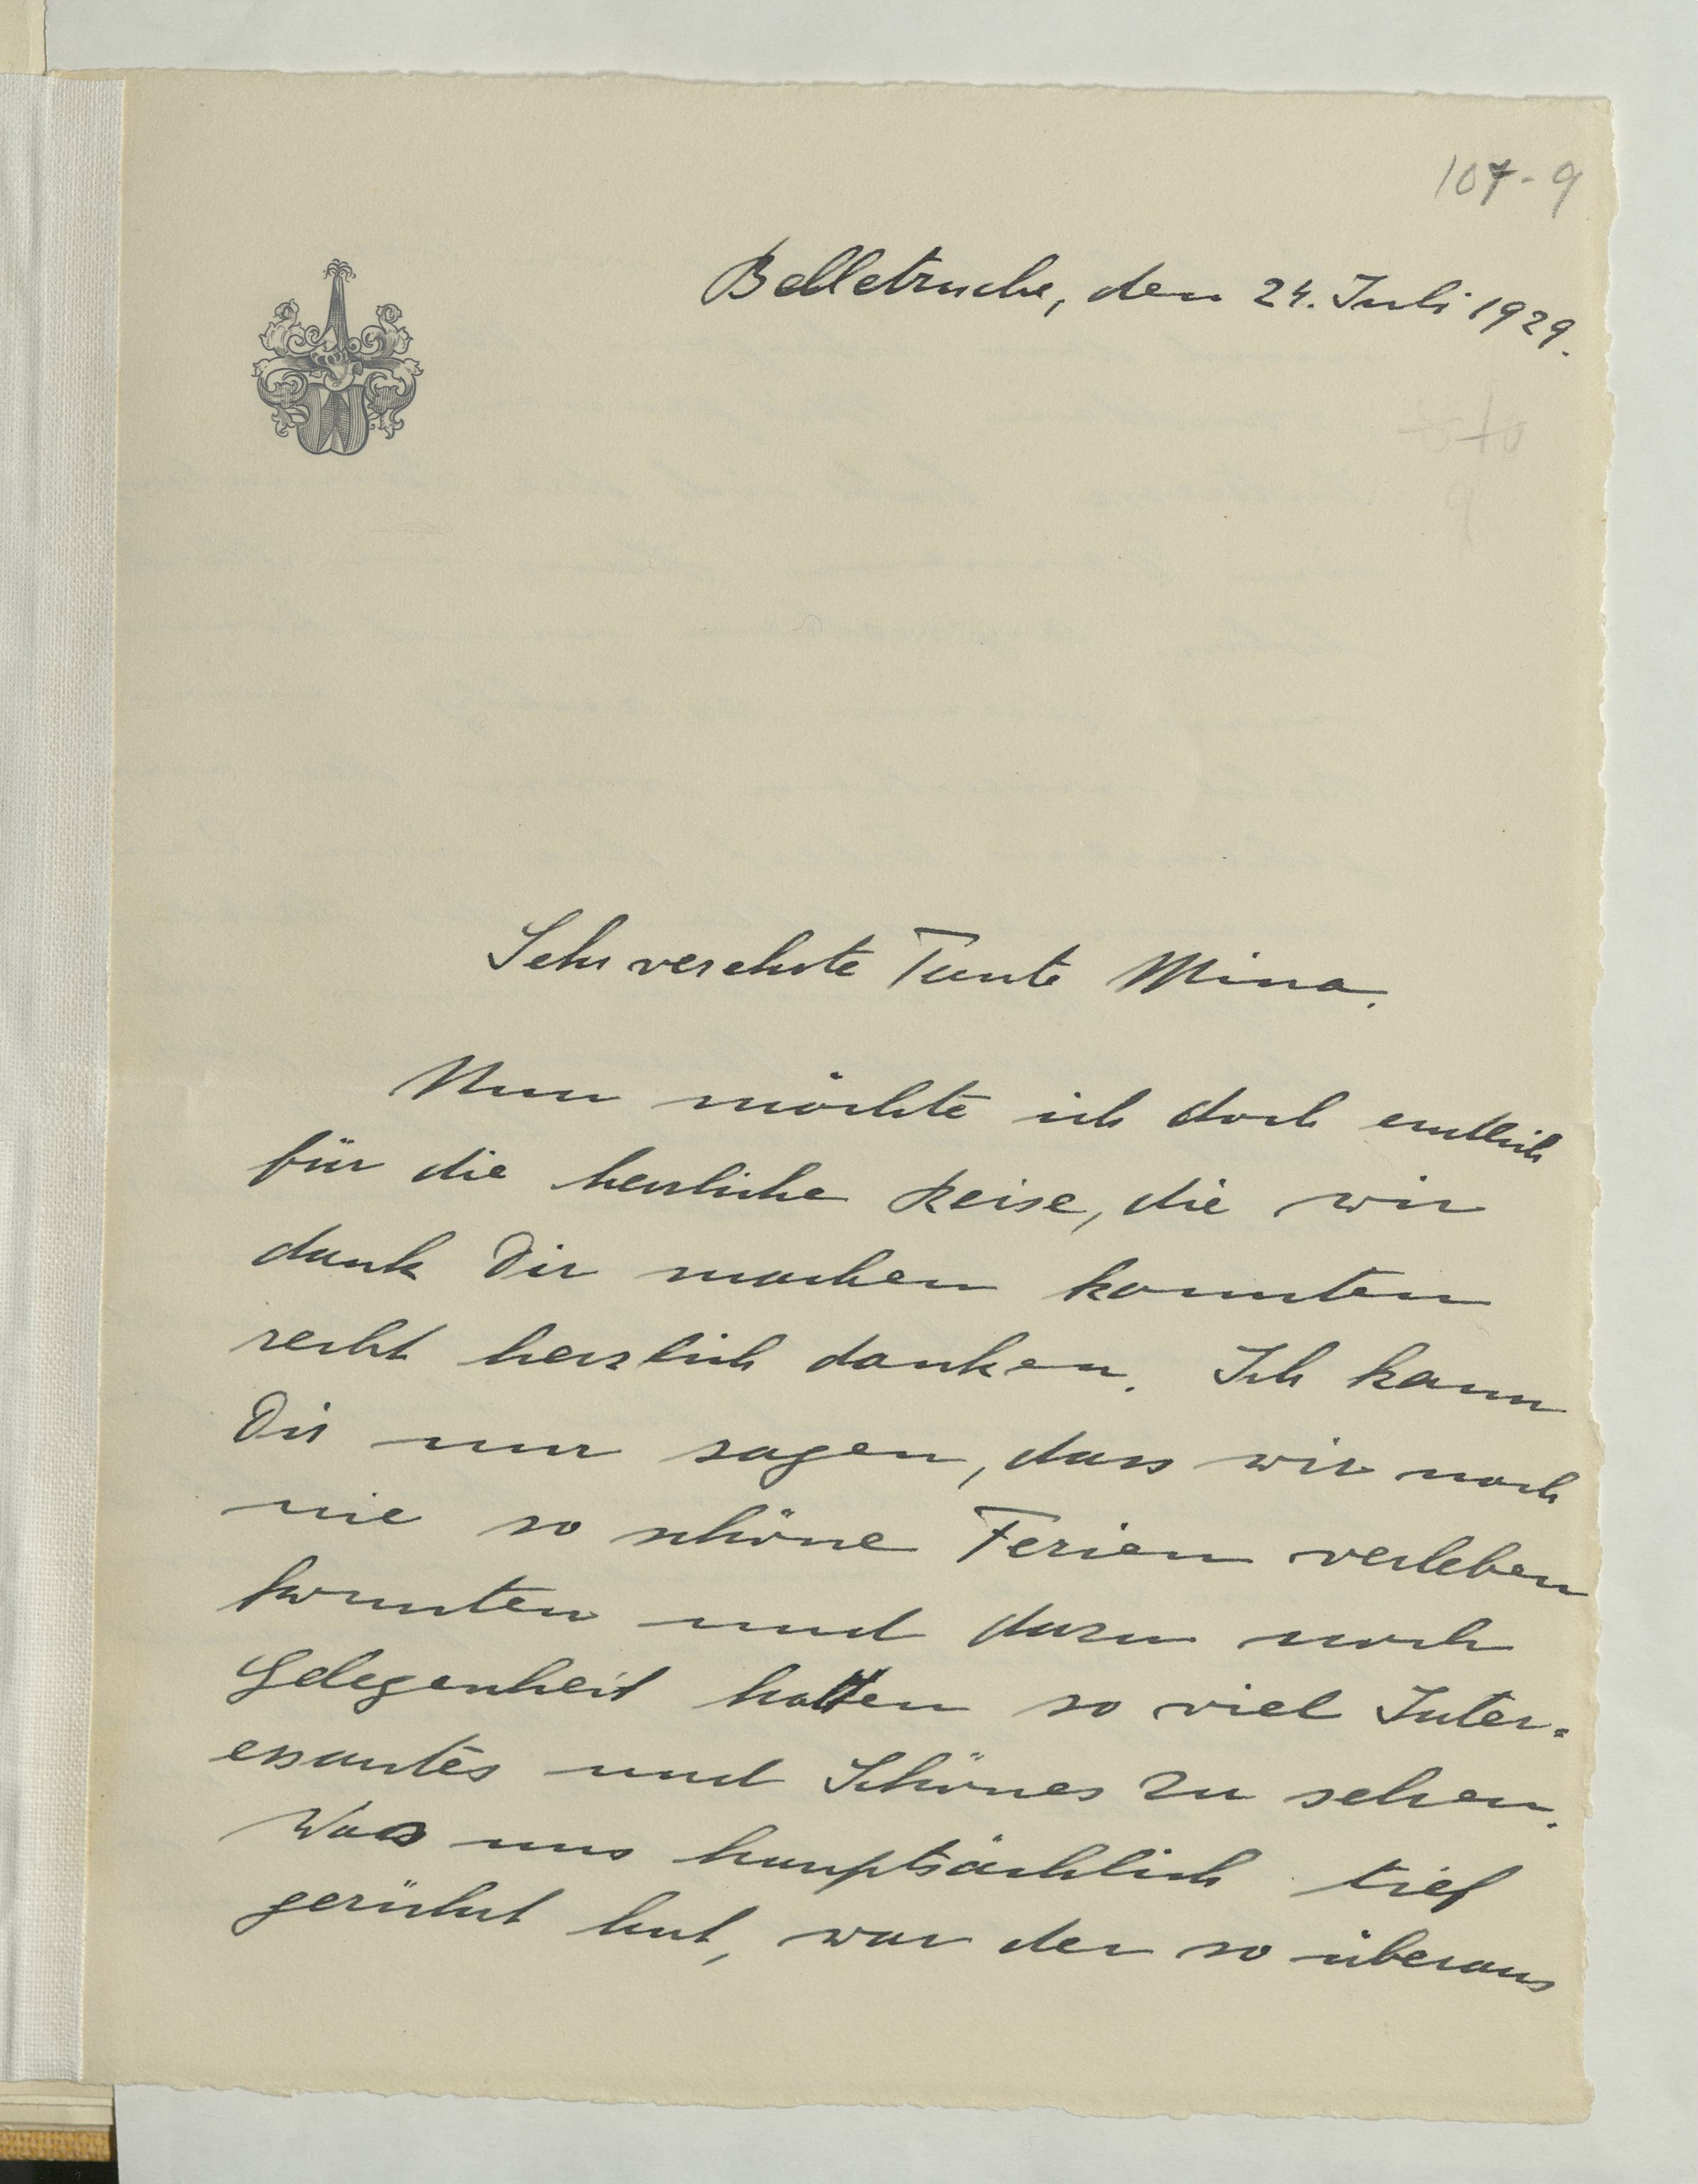 107-9
Belletruche, den 24. Juli 1929.
Sehr verehrte Tante Mina.
Nun möchte ich doch endlich
für die herrliche Reise, die wir
dank Dir machen konnten
recht herzlich danken. Ich kann
Dir nur sagen, dass wir noch
nie so schöne Ferien verleben
konnten und dazu noch
Gelegenheit hatten so viel Inter-
essantes und Schönes zu sehen.
Was uns hauptsächlich tief
gerührt hat, war der so überaus